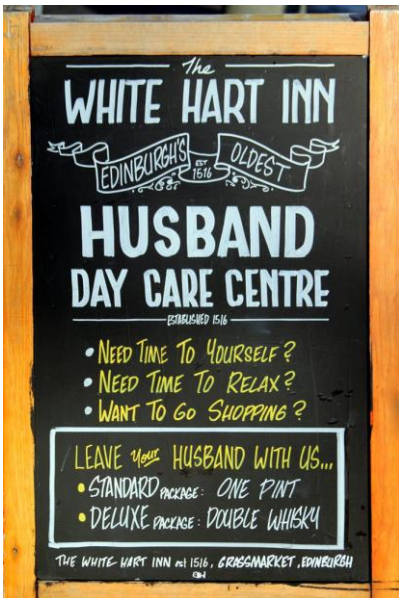 The
WHITE HART INN
EDINBURGH'S EST 1516 OLDEST
HUSBAND
DAY CARE CENTRE
ESTABLISHED 1516
• NEED TIME TO YOURSELF?
• NEED TIME TO RELAX?
• WANT TO GO SHOPPING?
LEAVE your HUSBAND WITH US...
• STANDARD PACKAGE: ONE PINT
• DELUXE PACKAGE: DOUBLE WHISKY
THE WHITE HART INN est 1516, GRASSMARKET, EDINBURGH